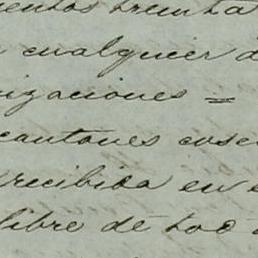 entos treinta
cualquier d
izaciones =
cantones
recibida en
libre de toda